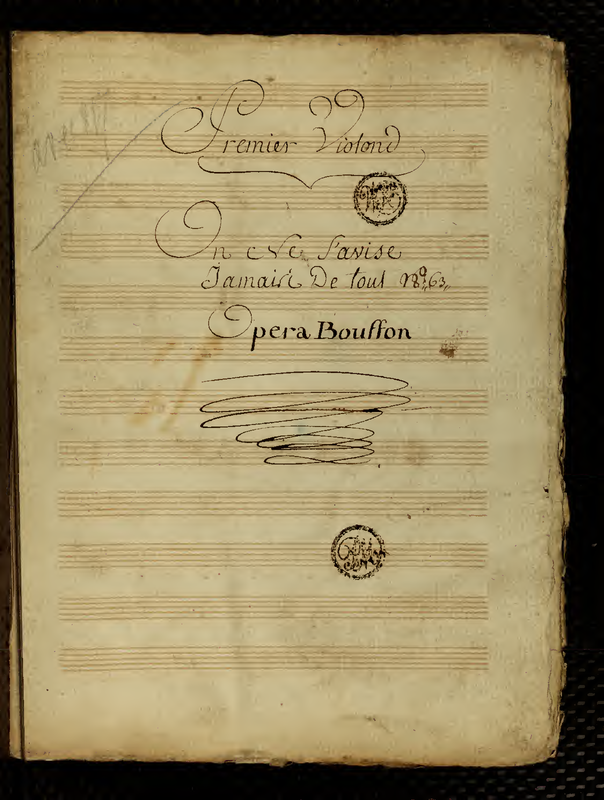 Premier Violond
On Ne S'avise
Jamais De tout Nº 63
Opera Bouffon